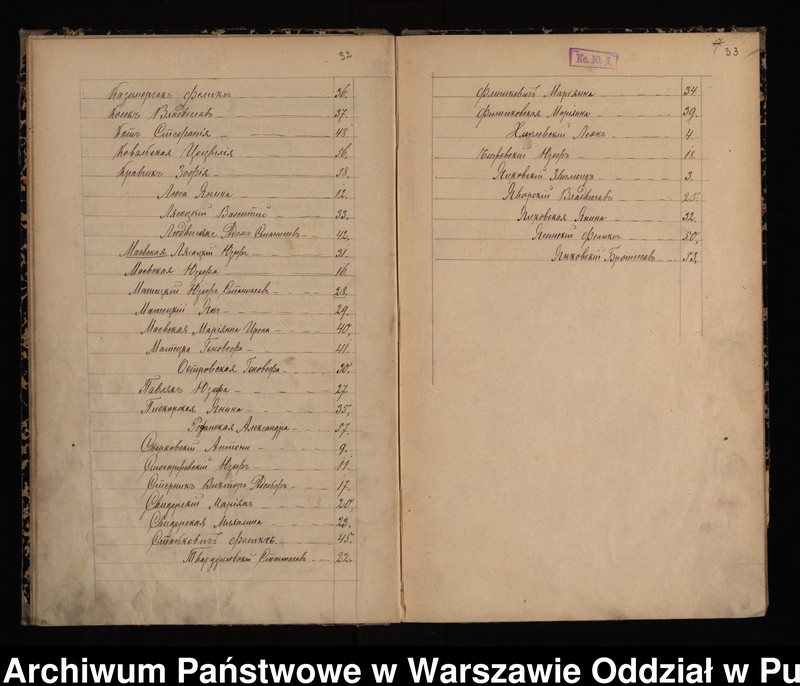 32
Казимерскъ Феликсъ 36.
Косекъ Владиславъ 37.
Котъ Стефанія 48
Ковальская Цецилія 56.
Кравчикъ Зофія 58.
Люса Янина 12.
Лясоцкій Валентій 33.
Людвисякъ Янъ Станиславъ 42.
Маевская Юзефъ 31.
Маевская Юзефа 16
Матецкій Юзефъ Станиславъ 28.
Матецкій Янъ 29.
Маевская Маріянна Ирена 40.
Матера Геновефа 41.
Островская Геновефа 30.
Павлякъ Юзефа 27
Пекорская Янина 35.
Александра 57.
Антони 9.
Юзефъ 11.
Стерникъ Викторъ 17.
Свидерскій Маріянъ 20.
Свидерская Михалина 23.
Станьковичъ Феликсъ. 45.
Твардзиковскій Станиславъ 22.
17
33
Ks. 10. I.
Филиповичъ Маріянна 34
Маріянна 39.
Хмѣлевскій Леонъ 4.
Юзефъ 18
Янковскій Зигмундъ 3.
Яворскій Владиславъ 25.
Янковская Янина 32.
Ясинскій Феликсъ 50.
Янковскій Брониславъ 53.
Archiwum Państwowe w Warszawie Oddział w Pu